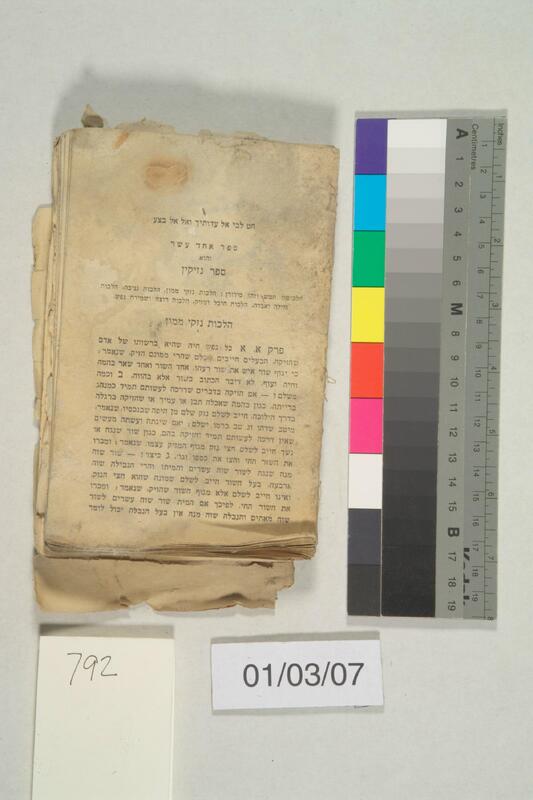 הט לבי אל עדותיך ואל אל בצע
ספר אחד עשר
והוא
ספר נזיקין
הלכותיו חמש, וזהו סידורן: הלכות נזקי ממון, הלכות גניבה, הלכות
גזילה ואבדה, הלכות חובל ומזיק, הלכות רוצח ושמירת נפש
הלכות נזקי ממון
פרק א. א כל נפש חיה שהיא ברשותו של אדם
שהזיקה, הבעלים חייבים לשלם שהרי ממונם הזיק, שנאמר:
כי יגוף שור איש את שור רעהו. אחד השור ואחד שאר בהמה
וחיה ועוף. לא דיבר הכתוב בשור אלא בהווה. ב וכמה
משלם? — אם הזיקה בדברים שדרכה לעשותם תמיד כמנהג
ברייתה, כגון בהמה שאכלה תבן או עמיר או שהזיקה ברגלה
בדרך הילוכה, חייב לשלם נזק שלם מן היפה שבנכסיו, שנאמר:
מיטב שדהו ומיטב כרמו ישלם; ואם שינתה ועשתה מעשים
שאין דרכה לעשותם תמיד והזיקה בהם, כגון שור שנגח או
נשך חייב לשלם חצי נזק מגוף המזיק עצמו, שנאמר: ומכרו
את השור החי וחצו את כספו וגו'. ג כיצד? — שור שוה
מנה שנגח לשור שוה עשרים והמיתו והרי הנבילה שוה
ארבעה, בעל השור חייב לשלם שמונה שהוא חצי הנזק,
ואינו חייב לשלם אלא מגוף השור שהזיק, שנאמר: ומכרו
את השור החי. לפיכך אם המית שור שוה עשרים לשור
שוה מאתים והנבלה שוה מנה אין בעל הנבלה יכול לומר
Inches
1
2
3
4
5
6
7
8
Centimetres
A 1 2 3 4 5 M 8 9 10 11 12 13 14 15 B 17 18 19
Kodak
792
01/03/07